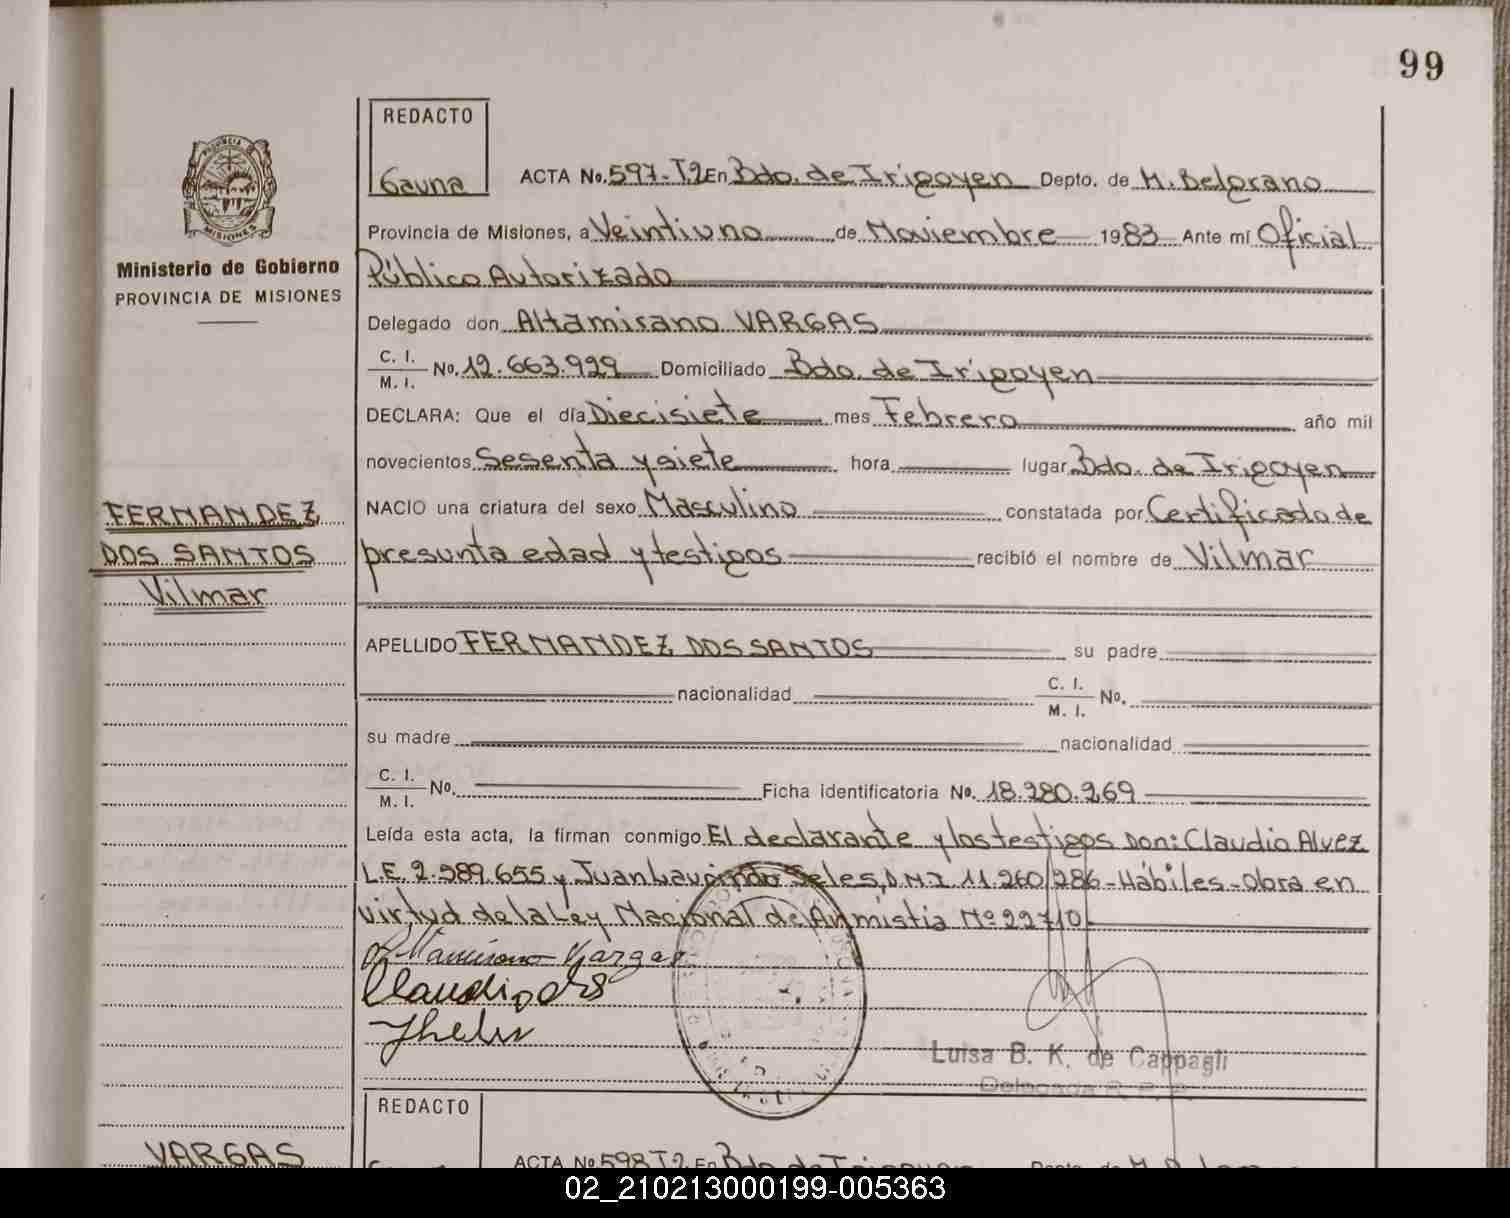 99
REDACTO
Gauna
ACTA No. 597-T.2 En Bdo. de Irigoyen Depto. de M. Belgrano
PROVINCIA
MISIONES
Ministerio de Gobierno
PROVINCIA DE MISIONES
Provincia de Misiones, a Veintiuno de Noviembre 1983 Ante mí Oficial
Público Autorizado
Delegado don Altamisano VARGAS
C. I.
M. I. No. 12.663.929 Domiciliado Bdo. de Irigoyen
DECLARA: Que el día Diecisiete mes Febrero año mil
novecientos Sesenta y siete hora lugar Bdo. de Irigoyen
NACIO una criatura del sexo Masculino constatada por Certificado de
presunta edad y testigos recibió el nombre de Vilmar
FERNANDEZ
DOS SANTOS
Vilmar
APELLIDO FERNANDEZ DOS SANTOS su padre
nacionalidad C. I.
M. I. No.
su madre nacionalidad
C. I.
M. I. No. Ficha identificatoria No. 18.280.269
Leída esta acta, la firman conmigo El declarante y los testigos Don: Claudio Alvez
L.E. 2.589.655 y Juan Laurindo Seles, D.N.I 11.260/286-Hábiles-Obra en
virtud de la Ley Nacional de Anmistia Nº 22710-
Vargas
Claudio
Luisa B. K. de Cappagli
Delegada R. P. P.
REDACTO
VARGAS
ACTA No 598 T2 En Bdo de Irigoyen Depto. de M. Belgrano
02_210213000199-005363